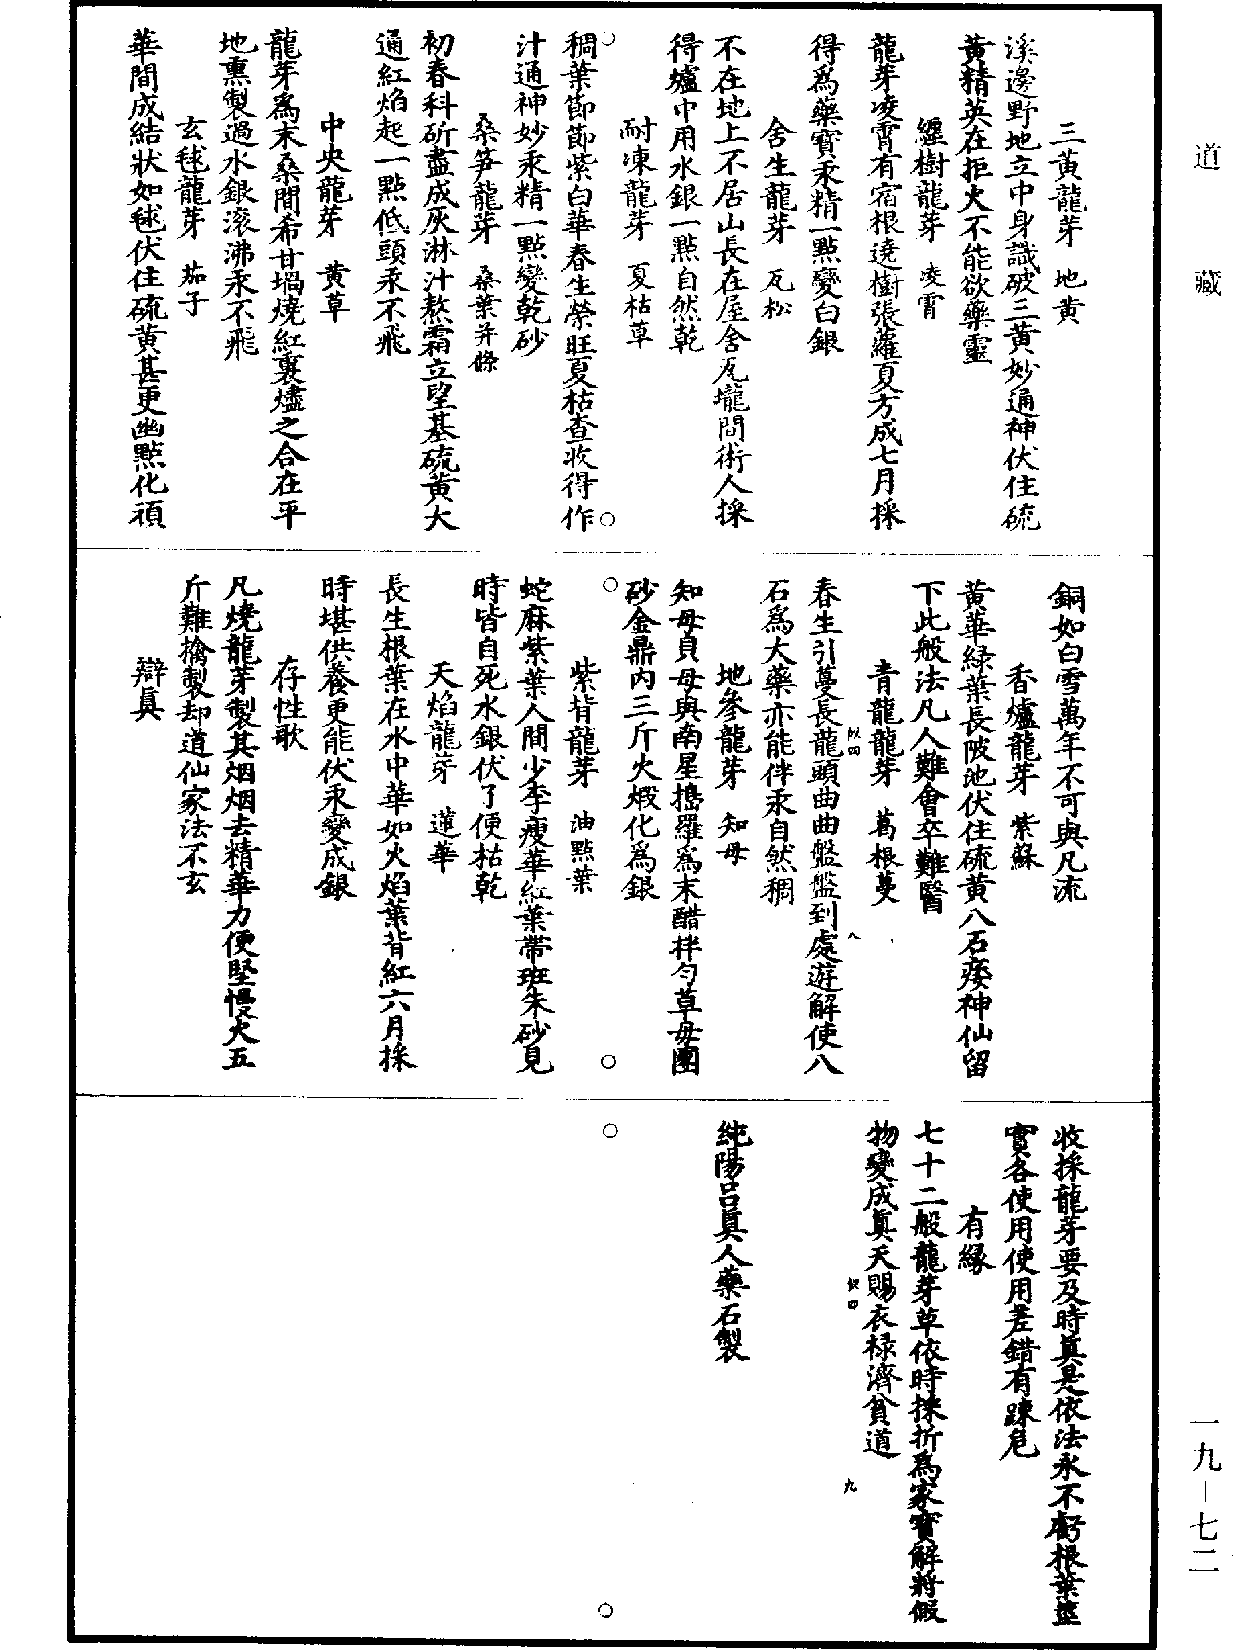 道藏
三黃龍芽　地黃
溪邊野地立中身識破三黃妙通神伏住硫
黃精英在拒火不能欲藥靈
纏樹龍芽　凌霄
龍芽凌霄有宿根遶樹張蘿夏方成七月採
得爲藥寶汞精一點變白銀
舍生龍芽　瓦松
不在地上不居山長在屋舍瓦壠間術人採
得爐中用水銀一點自然乾
耐凍龍芽　夏枯草
稠葉節節紫白華春生榮旺夏枯查收得作
汁通神妙汞精一點變乾砂
桑笋龍芽　桑葉并條
初春科斫盡成灰淋汁熬霜立望基硫黃大
通紅焰起一點低頭汞不飛
中央龍芽　黃草
龍芽爲末桑間希甘堝燒紅裏燼之合在平
地熏製過水銀滚沸汞不飛
玄毬龍芽　茄子
華間成結狀如毬伏住硫黃甚更幽點化頑
銅如白雪萬年不可與凡流
香爐龍芽　紫蘇
黃華綠葉長陂池伏住硫黃八石痿神仙留
下此般法凡人難會卒難醫
青龍龍芽　葛根蔓
春生引蔓長龍頭曲曲盤盤到處遊解使八
石爲大藥亦能伴汞自然稠
似四
八
地參龍芽　知母
知母貝母與南星搗羅爲末醋拌勻草母團
砂金鼎內三斤火煅化爲銀
紫背龍芽　油點葉
蛇麻紫葉人間少李瘦華紅葉帶班朱砂見
時皆自死水銀伏了便枯乾
天焰龍芽　蓮華
長生根葉在水中華如火焰葉背紅六月採
時堪供養更能伏汞變成銀
存性歌
凡燒龍芽製其烟烟去精華力便堅慢火五
斤難擒製却道仙家法不玄
辯眞
收採龍芽要及時眞是依法永不虧根葉莖
實各使用使用差錯有踈危
有緣
七十二般龍芽草依時採折爲家寶解將假
物變成眞天賜衣禄濟貧道
似四
九
純陽呂眞人藥石製
一九－七二